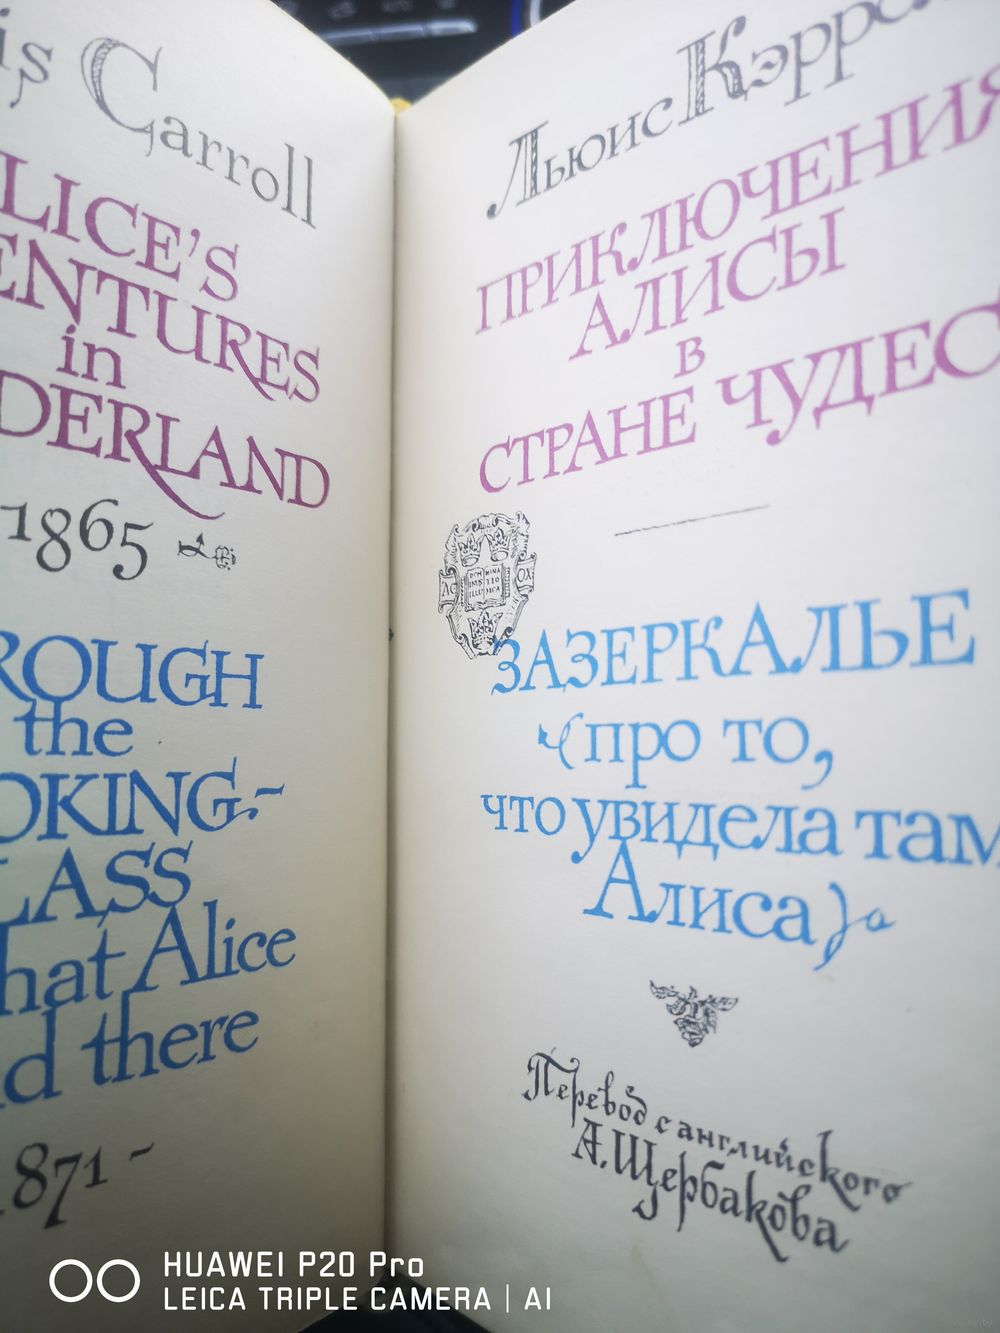 is Carroll
LICE'S
ENTURES
in
DERLAND
1865
ROUGH
the
OKING-
LASS
hat Alice
d there
1871 -
Льюис Кэррол
ПРИКЛЮЧЕНИЯ
АЛИСЫ
в
СТРАНЕ ЧУДЕС
AC OX
DOM MINA
IMS TIO
ILLU MEA
ЗАЗЕРКАЛЬЕ
(про то,
что увидела там
Алиса)
Перевод с английского
А. Щербакова
HUAWEI P20 Pro
LEICA TRIPLE CAMERA | AI